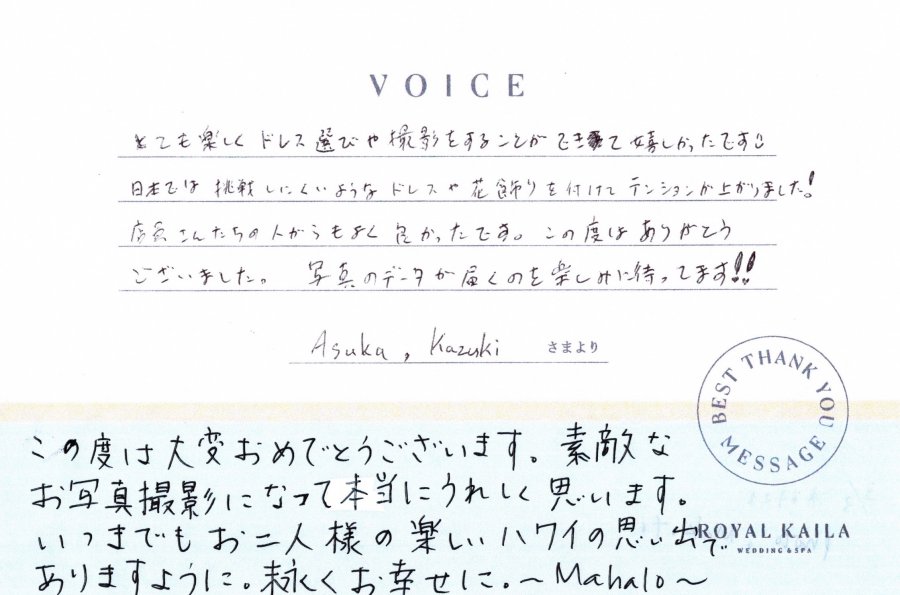 VOICE
とても楽しくドレス選びや撮影をすることができて嬉しかったです
日本では挑戦しにくいようなドレスや花飾りを付けてテンションが上がりました!
店員さんたちの人がらもよく良かったです。この度はありがとう
ございました。 写真のデータが届くのを楽しみに待ってます!!
Asuka, Kazuki さまより
BEST THANK YOU MESSAGE
この度は大変おめでとうございます。素敵な
お写真撮影になって本当にうれしく思います。
いつまでもお二人様の楽しいハワイの思い出で
ROYAL KAILA
WEDDING & SPA
ありますように。末永くお幸せに。〜Mahalo〜